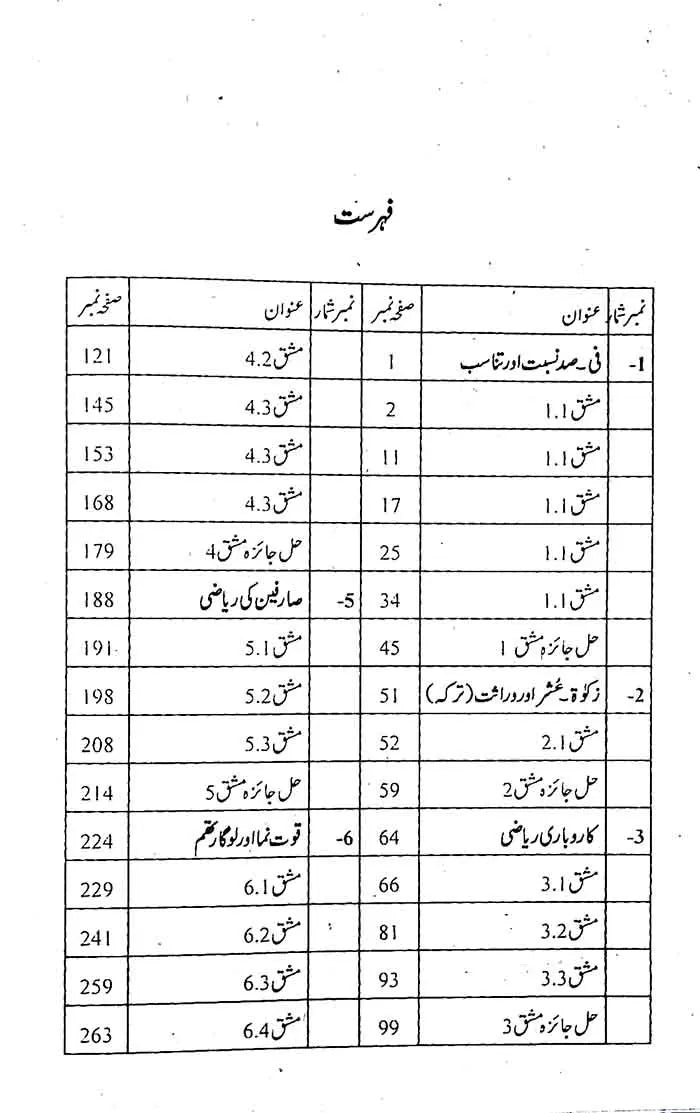 فہرست
نمبر شمار عنوان صفحہ نمبر نمبر شمار عنوان صفحہ نمبر
1- فی۔صد نسبت اور تناسب 1 مشق 4.2 121
مشق 1.1 2 مشق 4.3 145
مشق 1.1 11 مشق 4.3 153
مشق 1.1 17 مشق 4.3 168
مشق 1.1 25 حل جائزہ مشق 4 179
مشق 1.1 34 5- صارفین کی ریاضی 188
حل جائزہ مشق 1 45 مشق 5.1 191
2- زکوٰۃ۔عُشر اور وراثت (ترکہ) 51 مشق 5.2 198
مشق 2.1 52 مشق 5.3 208
حل جائزہ مشق 2 59 حل جائزہ مشق 5 214
3- کاروباری ریاضی 64 6- قوت نما اور لوگارتھم 224
مشق 3.1 66 مشق 6.1 229
مشق 3.2 81 مشق 6.2 241
مشق 3.3 93 مشق 6.3 259
حل جائزہ مشق 3 99 مشق 6.4 263